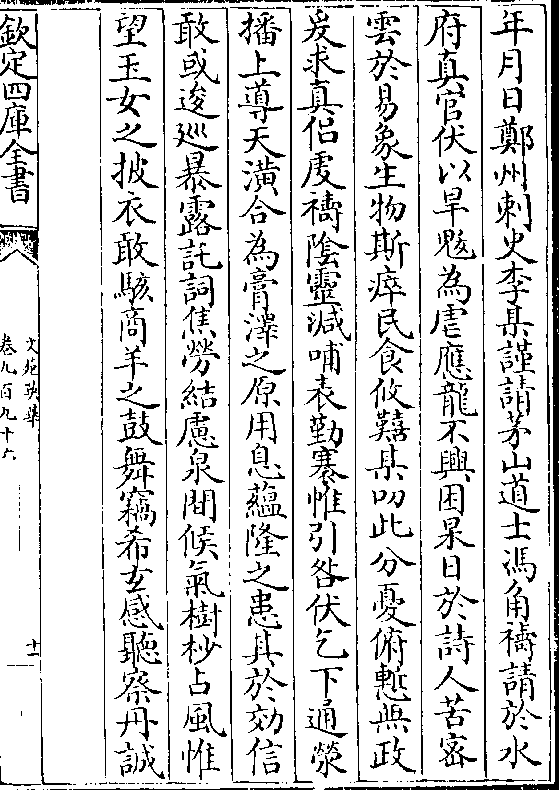 年月日鄭州刺史李某謹請茅山道士馮角禱請於水
府真官伏以旱魃為虐應龍不興困杲日於詩人苦密
雲於易象生物斯瘁民食攸艱某叨此分憂俯慙無政
爰求真侣虔禱陰靈減哺表勤褰帷引咎伏乞下通滎
播上導天潢合為膏澤之原用息蘊隆之患其於効信
敢或逡廵暴露託詞焦勞結慮泉間候氣樹杪占風惟
望玉女之披衣敢駭商羊之鼓舞竊希玄感聽察丹誠
欽定四庫全書
文苑英華
卷九百九十六
十一